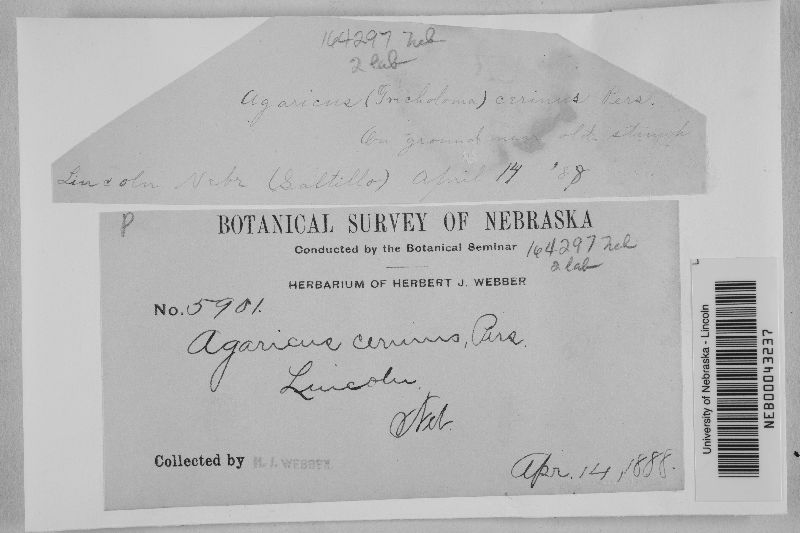 164297 Neb
2 lab
Agaricus (Tricholoma) cerinus Pers.
On ground near old stump
Lincoln Nebr (Saltillo) April 14 '88
P
BOTANICAL SURVEY OF NEBRASKA
Conducted by the Botanical Seminar
164297 Neb
2 lab
HERBARIUM OF HERBERT J. WEBBER
No. 5901.
Agaricus cerinus, Pers.
Lincoln,
Neb.
Collected by H. J. WEBBER.
Apr. 14, 1888.
University of Nebraska - Lincoln
NEB00043237